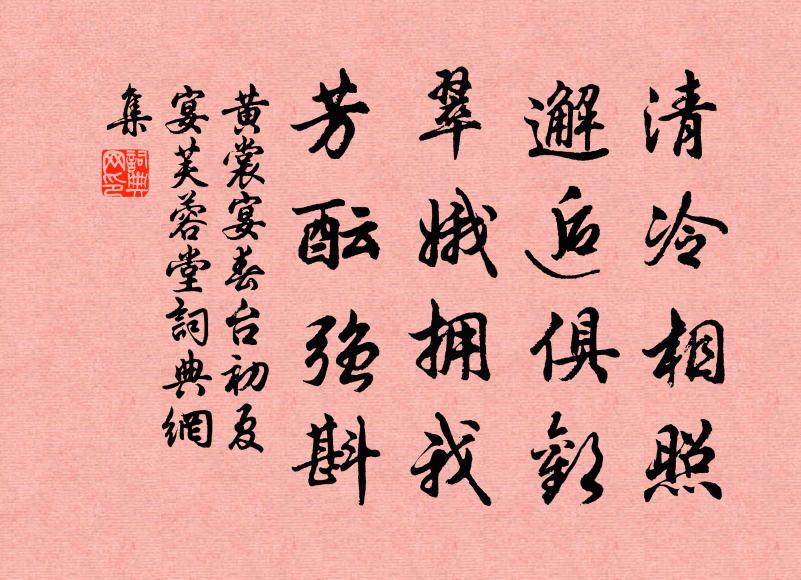 清冷相照
邂逅俱歡
翠娥拥我
芳酝强斟
黄裳宴春台初夏
宴芙蓉堂詞典網
集
詞典
网印